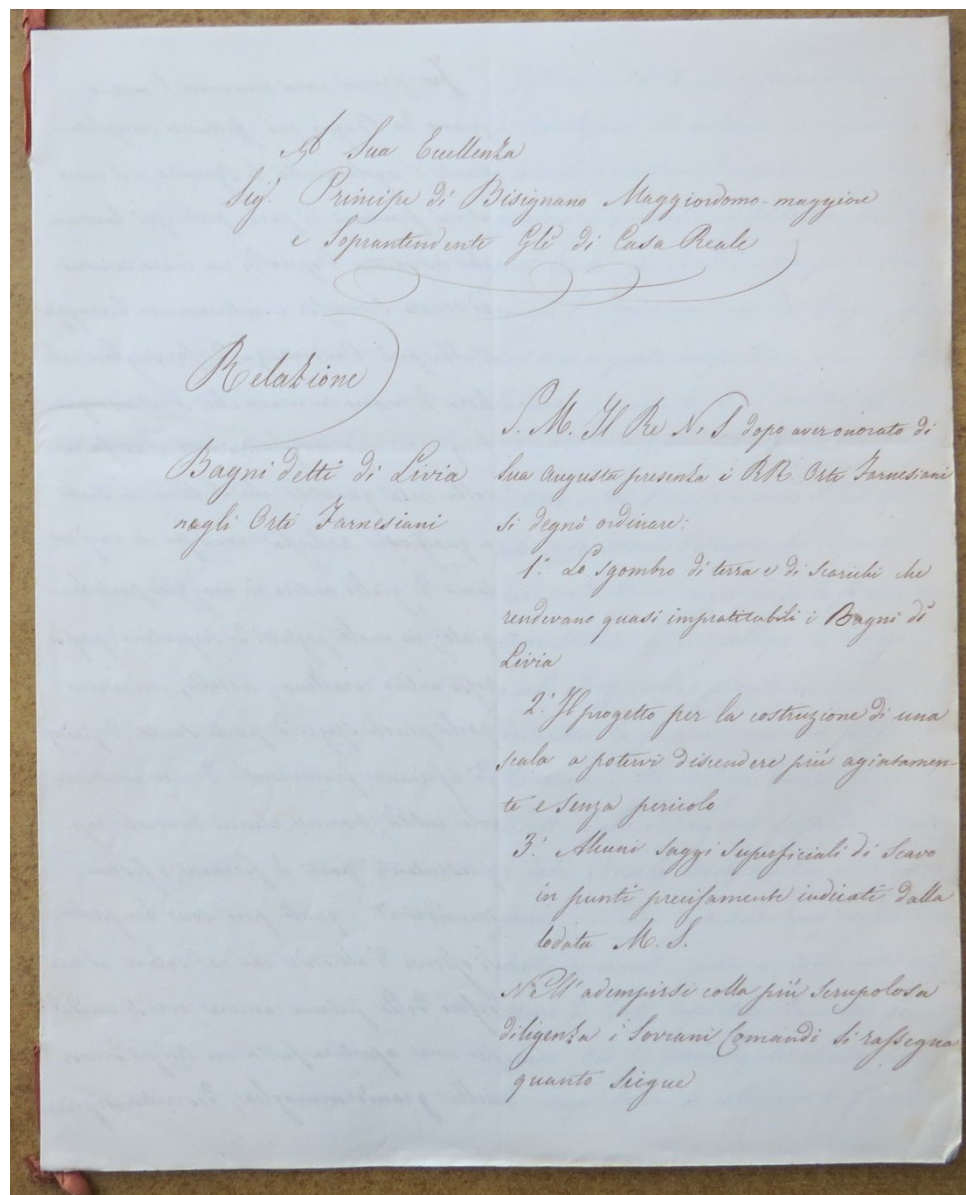 A Sua Eccellenza
Sig.r Principe di Bisignano Maggiordomo-maggiore
e Soprantendente Gle di Casa Reale
Relazione
Bagni detti di Livia
negli Orti Farnesiani
S. M. Il Re N. S. dopo aver onorato di
Sua Augusta presenza i RR. Orti Farnesiani
si degnò ordinare:
1.° Lo sgombro di terra e di scarichi che
rendevano quasi impraticabili i Bagni di
Livia
2.° Il progetto per la costruzione di una
scala a potervi discendere più agiatamen-
te e senza pericolo
3.° Alcuni saggi superficiali di Scavo
in punti precisamente indicati dalla
lodata M. S.
Nell'adempirsi colla più scrupolosa
diligenza i Sovrani Comandi si rassegna
quanto siegue